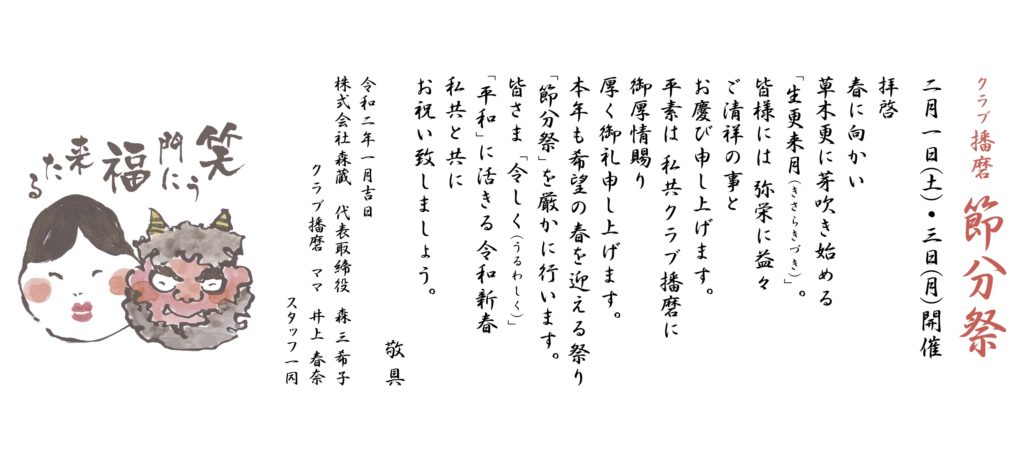 クラブ播磨 節分祭
二月一日(土)・三日(月)開催
拝啓
春に向かい
草木更に芽吹き始める
「生更来月(きさらきづき)」。
皆様には 弥栄に益々
ご清祥の事と
お慶び申し上げます。
平素は 私共クラブ播磨に
御厚情賜り
厚く御礼申し上げます。
本年も希望の春を迎える祭り
「節分祭」を厳かに行います。
皆さま「令しく(うるわしく)」
「平和」に活きる 令和新春
私共と共に
お祝い致しましょう。
敬具
令和二年一月吉日
株式会社 森蔵 代表取締役 森 三希子
クラブ播磨 ママ 井上 春奈
スタッフ一同
笑う
門に
福
来
たる